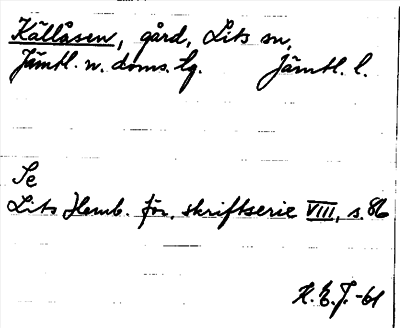 Källåsen, gård, Lits sn,
Jämtl. n. doms. lg. Jämtl. l.
Se
Lits Hemb. för. skriftserie VIII, s. 86
K. E. J. -61